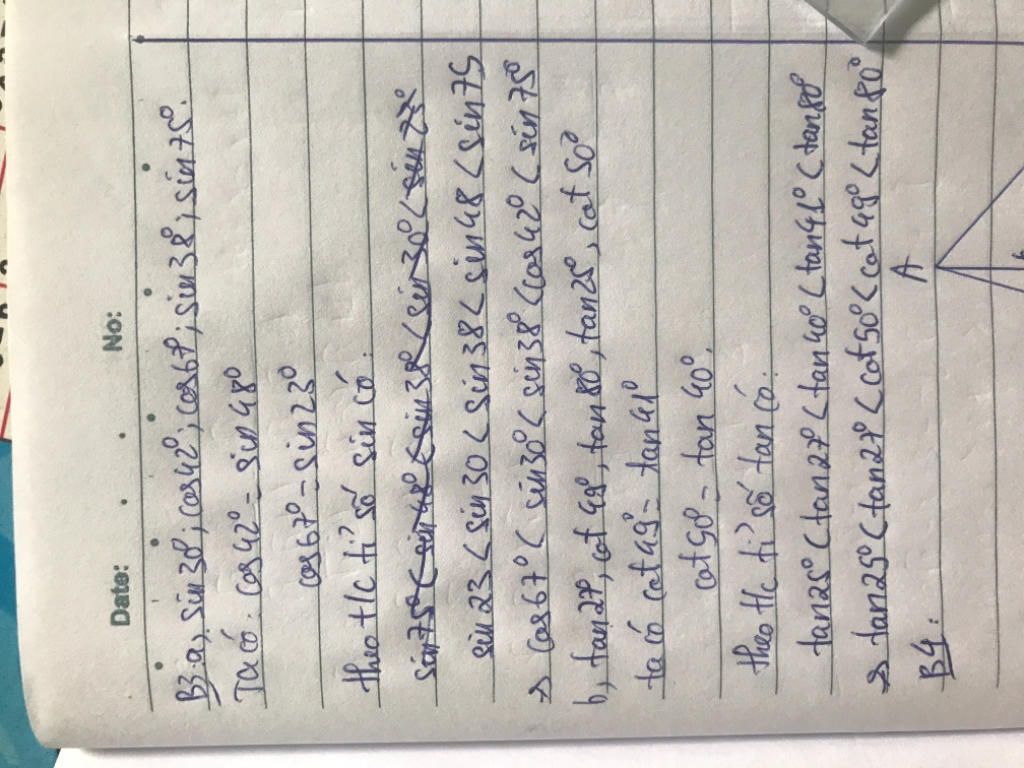 Date: No:
B3: a, sin 30°; cos 42°; cos 67°; sin 38°; sin 75°.
Ta có: cos 42° = sin 48°
cos 67° = sin 23°
theo t/c tỉ số sin có:
sin 75° < sin 48° < sin 38° < sin 30° < sin 23°
sin 23 < sin 30 < sin 38 < sin 48 < sin 75
→ cos 67° < sin 30° < sin 38° < cos 42° < sin 75°
b, tan 27°, cot 49°, tan 80°, tan 25°, cot 50°
ta có cot 49° = tan 41°
cot 50° = tan 40°.
theo t/c tỉ số tan có:
tan 25° < tan 27° < tan 40° < tan 41° < tan 80°
→ tan 25° < tan 27° < cot 50° < cot 49° < tan 80°
B4: A